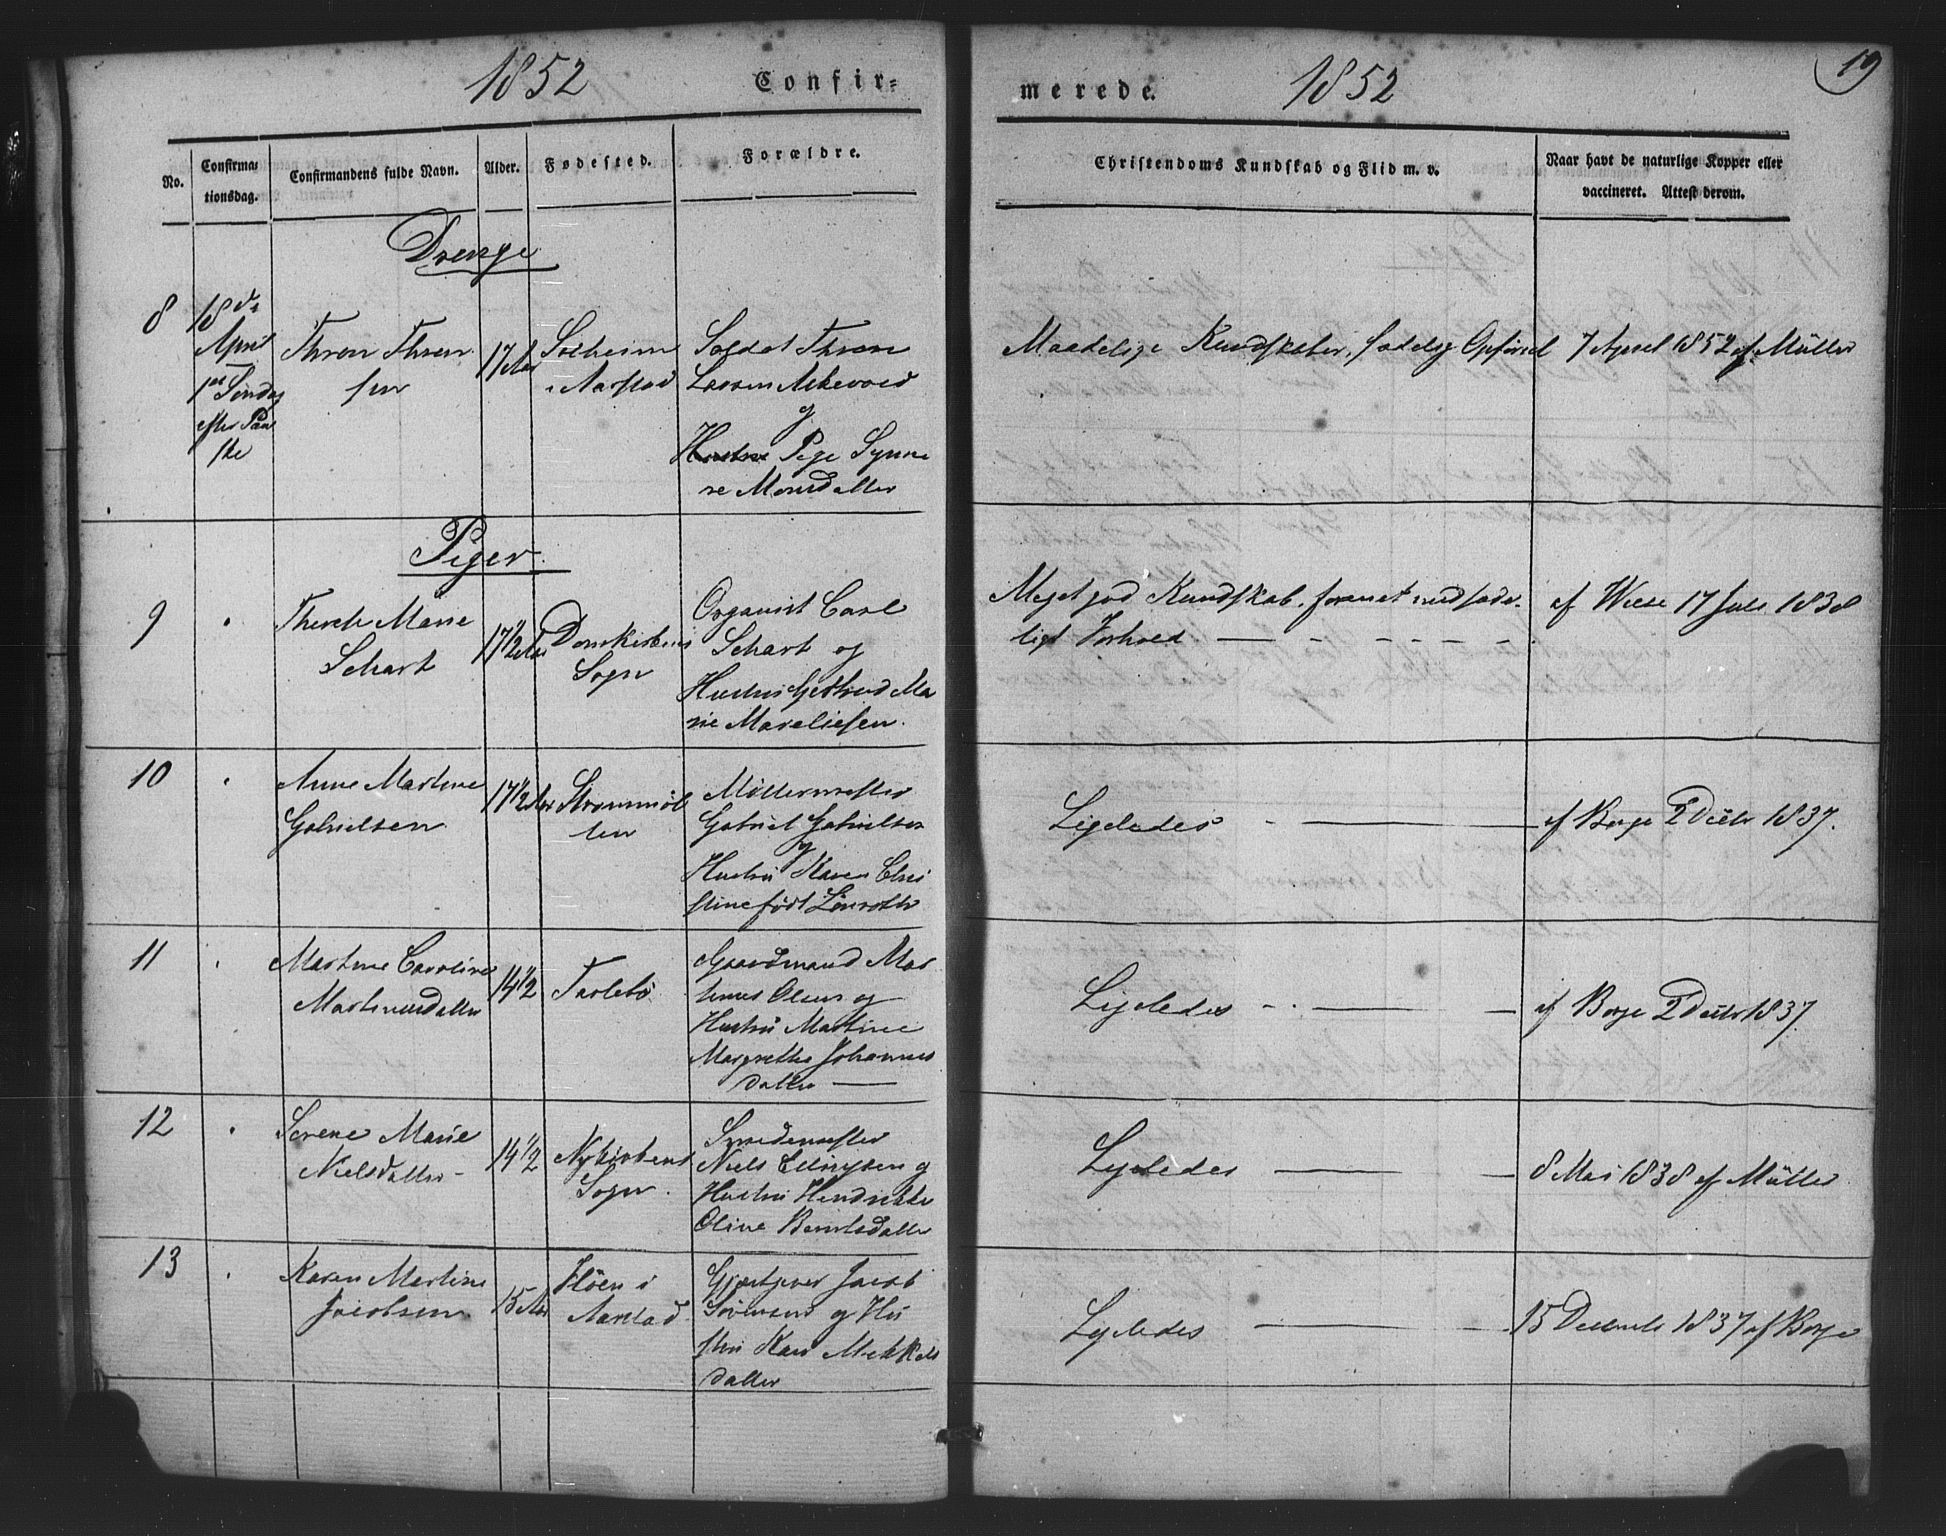 1852 Confir=
merede. 1852 19
No. Confirma= tionsdag. Confirmandens fulde Navn. Alder. Fødested. Forældre.
Christendoms Kundskab og Flid m. v. Naar havt de naturlige Kopper eller vaccineret. Attest derom.
Drenge
8
18de
April
1ste Søndag
efter Paa
ske
Thron Thron
sen
17 Aar
Solheim
i Aarstad
Soldat Thron
Larsen
og
Hustru Pige Synne
ve Monsdatter
Maadelige Kundskaber, sædelig Opførsel
7 April 1852 af Müller
Piger
9
Marie
Schart
17 1/2 Aar
Domkirkens
Sogn
Organist Carl
Schart og
Hustru Gertrud Ma
rie
Meget god Kundskab, forenet med sæde-
ligt Forhold
af Wiese 17 Juli 1838
10
Anne Martine
Gabrielsen
17 1/2 Aar
Strømmøl
len
Møllermester
Gabriel Gabrielsen
og
Hustru Karen Chri
stine født Lönroth
Ligeledes
af Borge 2 Decbr 1837.
11
Martine Caroline
Martinusdatter
14 1/2
Tarlebø
Gaardmand Mar
tinus Olsen og
Hustru Martine
Margrethe Johannes
datter
Ligeledes
af Borge 2 Decbr 1837.
12
Serene Marie
Nielsdatter
14 1/2
Nykirkens
Sogn
Smedemester
Niels Ellingsen og
Hustru Hendrikke
Oline Berntsdatter
Ligeledes
8 Mai 1838 af Müller
13
Karen Martine
Jacobsen
15 Aar
Fløen i
Aarstad
Gjæstgever Jacob
Sørensen og Hu
stru Kari Mikkels
datter
Ligeledes
15 Decembr 1837 af Borge